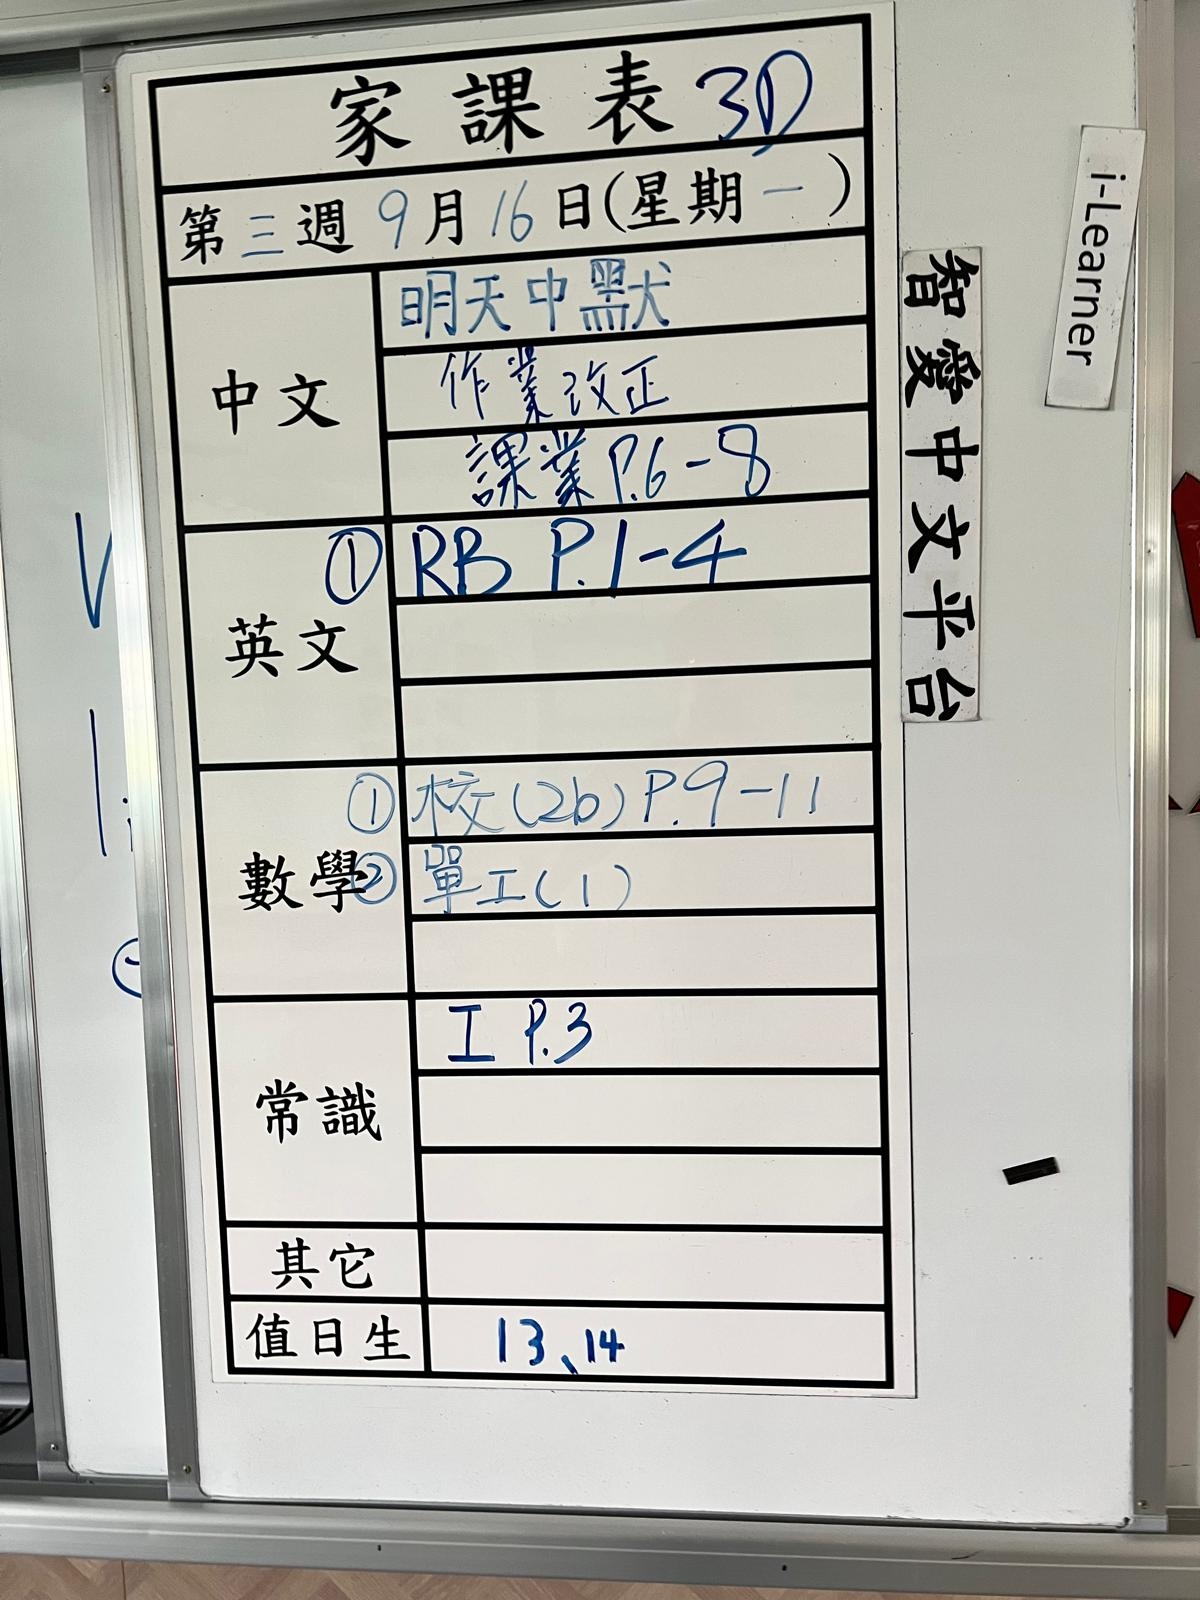 家課表 3D
第三週 9月16日(星期一)
中文
明天中默
作業改正
課業 P.6-8
英文
① RB P.1-4
數學
① 校(2b) P.9-11
② 單工(1)
常識
工 P.3
其它
值日生
13、14
i-Learner
智愛中文平台